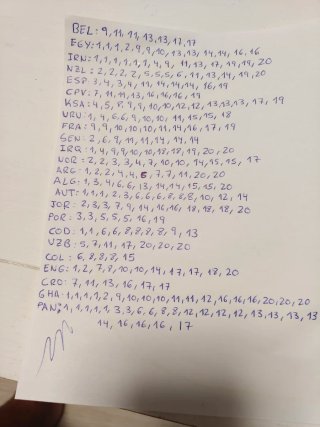 BEL: 9,11,11,13,13,17,17
EGY: 1,1,1,2,9,9,10,13,13,14,14,16,16
IRN: 1,1,1,1,1,1,4,9, 11,13,17,19,19,20
NZL: 2,2,2,2,5,5,5,6,11,13,14,19,20
ESP: 3,4,3,4,11,14,14,14,16,19
CPV: 7,11,11,13,16,16,16,19
KSA: 4,5,8,9,9,10,10,12,12,13,13,13,17,19
URU: 1,4,6,6,9,10,10,11,15,15,18
FRA: 9,9,10,10,10,11,14,16,17,19
SEN: 2,6,9,11,11,14,14,14
IRQ: 1,4,9,9,10,10,18,18,19,20,20
NOR: 2,2,3,3,4,7,10,10,14,15,15,17
ARG: 1,2,2,4,4,6,7,7,11,20,20
ALG: 1,3,4,6,6,13,14,14,15,15,20
AUT: 1,1,1,2,3,6,6,6,8,8,8,10,12,14
JOR: 2,3,3,7,9,14,16,16,18,18,18,20
POR: 3,3,5,5,5,16,19
COD: 1,1,6,6,8,8,8,8,9,13
UZB: 5,7,11,17,20,20,20
COL: 6,8,8,8,15
ENG: 1,2,7,8,10,10,14,17,17,18,20
CRO: 7,11,13,16,17,17
GHA: 1,1,1,1,2,9,10,10,10,11,11,12,16,16,16,20,20,20
PAN: 1,1,1,1,1,3,3,6,6,8,8,12,12,12,12,13,13,13,13
14,16,16,16,17